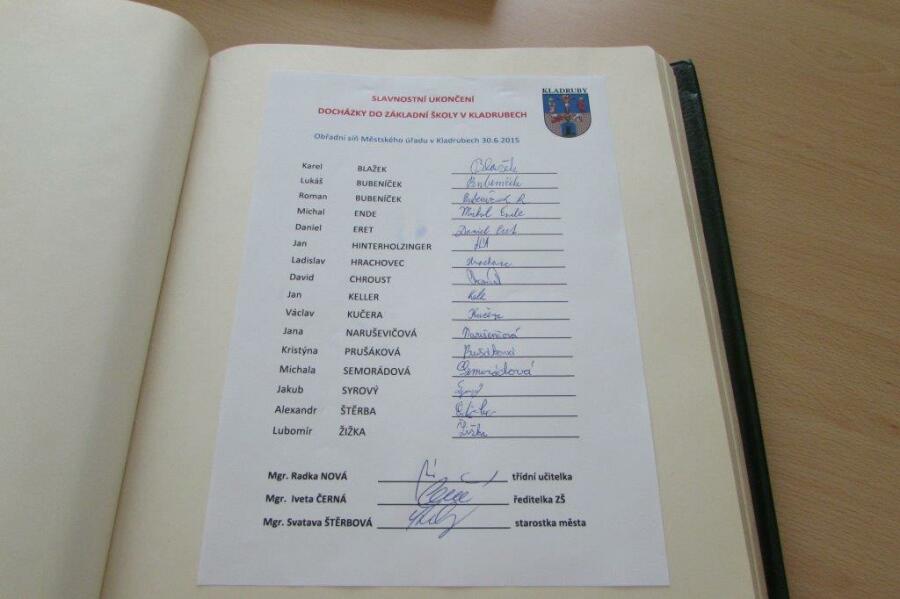 KLADRUBY
SLAVNOSTNÍ UKONČENÍ
DOCHÁZKY DO ZÁKLADNÍ ŠKOLY V KLADRUBECH
Obřadní síň Městského úřadu v Kladrubech 30.6.2015
Karel BLAŽEK Blažek
Lukáš BUBENÍČEK Bubeníček
Roman BUBENÍČEK Bubeníček R
Michal ENDE Michal Ende
Daniel ERET Daniel Eret
Jan HINTERHOLZINGER
Ladislav HRACHOVEC Hrachovec
David CHROUST
Jan KELLER
Václav KUČERA Kučera
Jana NARUŠEVIČOVÁ Naruševičová
Kristýna PRUŠÁKOVÁ Prušáková
Michala SEMORÁDOVÁ Semorádová
Jakub SYROVÝ
Alexandr ŠTĚRBA
Lubomír ŽIŽKA Žižka
Mgr. Radka NOVÁ třídní učitelka
Mgr. Iveta ČERNÁ ředitelka ZŠ
Mgr. Svatava ŠTĚRBOVÁ starostka města